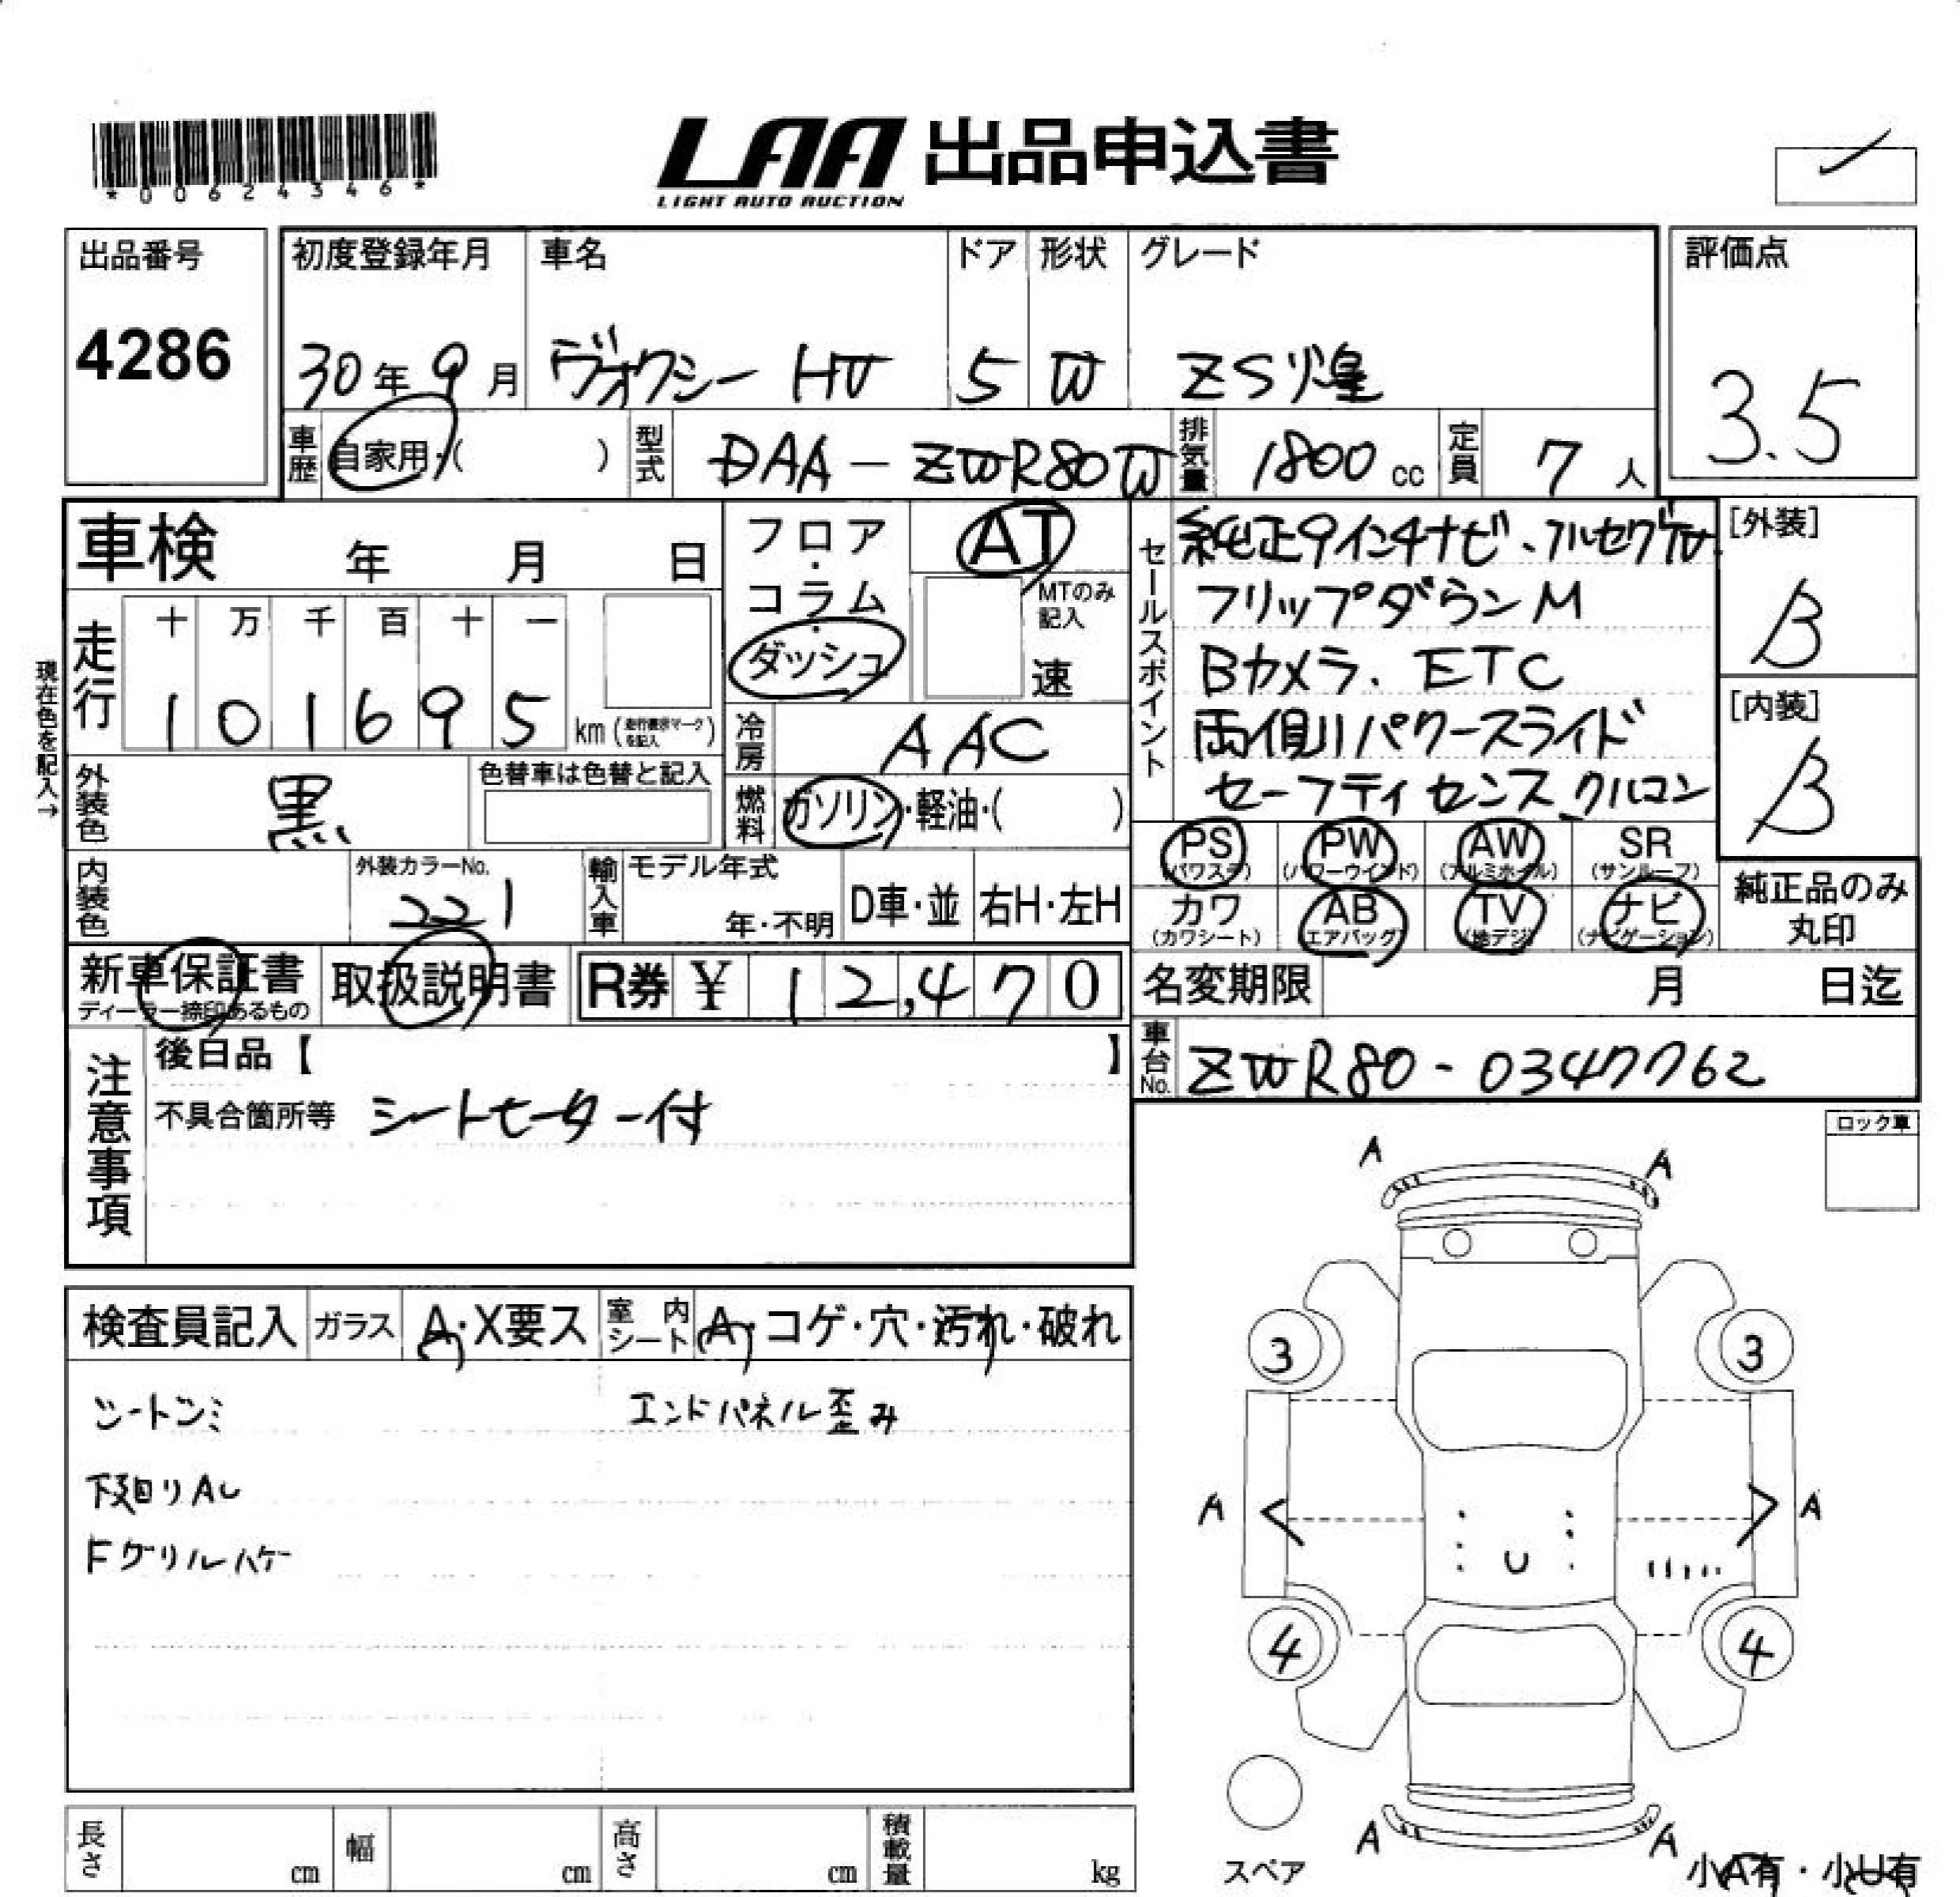 *00624346*
LAA 出品申込書
LIGHT AUTO AUCTION
出品番号
4286
初度登録年月
30年 9月
車名
ヴォクシー HV
ドア
5
形状
W
グレード
ZS煌
評価点
3.5
車歴 自家用・( )
型式 DAA-ZWR80W
排気量 1800 cc
定員 7 人
車検 年 月 日
フロア・コラム・ダッシュ
AT
MTのみ記入
速
セールスポイント
純正9インチナビ、フルセグTV
フリップダウンM
Bカメラ、ETC
両側パワースライド
セーフティセンス クルコン
[外装]
B
[内装]
B
現在色を記入→
走行
十 万 千 百 十 一
1 0 1 6 9 5 km (走行表示マークを記入)
冷房 AAC
外装色 黒
色替車は色替と記入
燃料 ガソリン・軽油・( )
PS (パワステ)
PW (パワーウインド)
AW (アルミホイル)
SR (サンルーフ)
カワ (カワシート)
AB (エアバッグ)
TV (地デジ)
ナビ (ナビゲーション)
純正品のみ丸印
内装色
外装カラーNo. 221
輸入車 モデル年式
年・不明
D車・並
右H・左H
新車保証書
ディーラー捺印あるもの
取扱説明書
R券 ¥ 12,470
名変期限 月 日迄
車台No. ZWR80-0347762
注意事項
後日品【 】
不具合箇所等 シートヒーター付
ロック車
検査員記入
ガラス A・X要ス
室内シート A・コゲ・穴・汚れ・破れ
シートシミ
エンドパネル歪み
下廻りAU
Fグリルハゲ
A A
3 3
A A
U
4 4
A A
スペア
小A有・小U有
長さ cm
幅 cm
高さ cm
積載量 kg